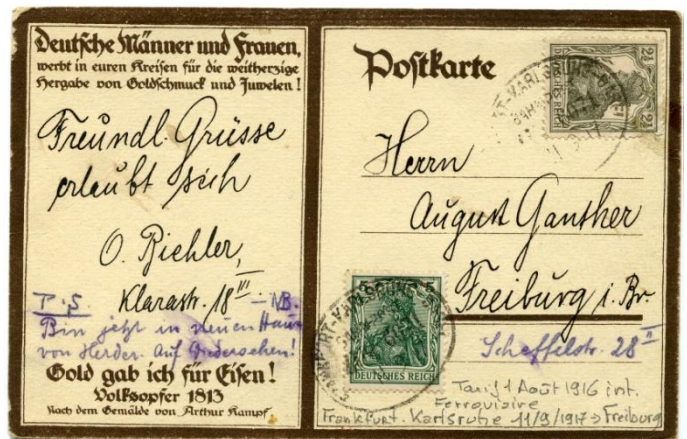 Deutsche Männer und Frauen,
werbt in euren Kreisen für die weitherzige
Hergabe von Goldschmuck und Juwelen!
Freundl. Grüsse
erlaubt sich
O. Biehler,
Klarastr. 18 III.
P.S. — NB.
Bin jetzt in neuen Haus
von Herder. Auf Wiedersehen!
Gold gab ich für Eisen!
Volksopfer 1813
Nach dem Gemälde von Arthur Kampf
Postkarte
2½ 2½
Herrn
August Ganther
Freiburg i. Br.
Scheffelstr. 28 II
5 5
DEUTSCHES REICH
FRANKFURT-KARLSRUHE
Tarif 1 Août 1916 int.
Ferroviaire
Frankfurt. Karlsruhe 11/9/1917 → Freiburg